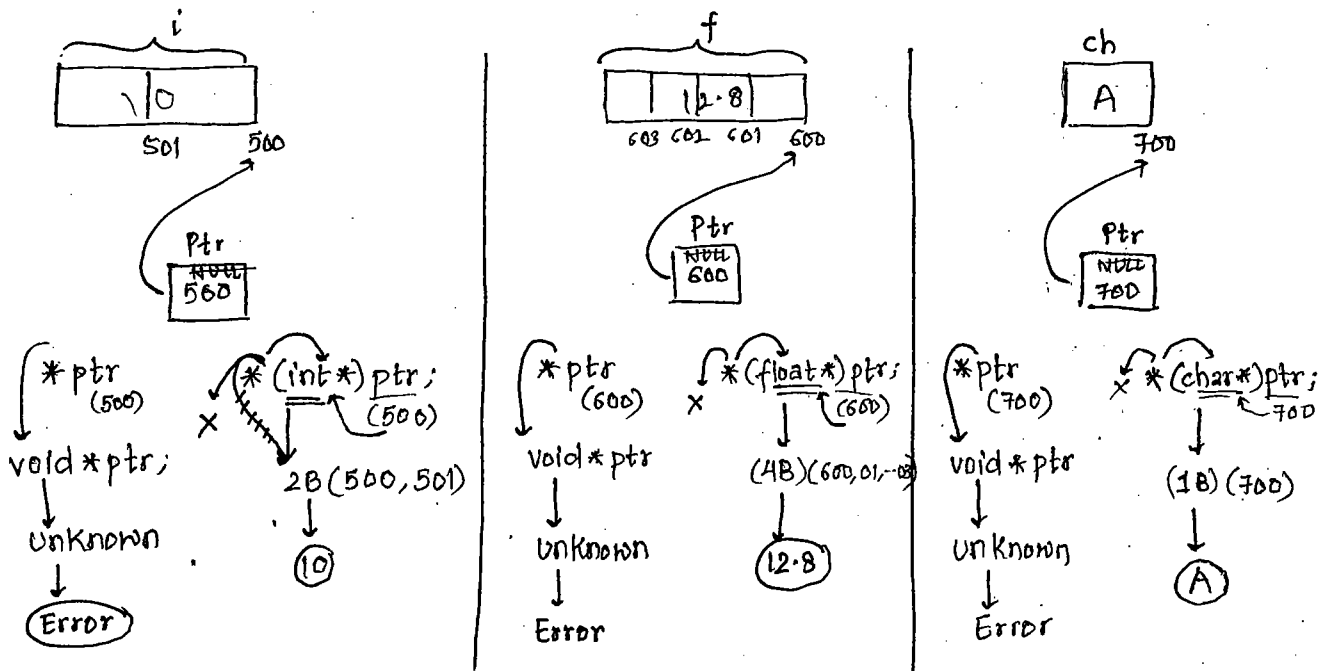 i
10
501 500
Ptr
NULL
500
*ptr
(500)
void *ptr;
unknown
Error
* (int *) ptr;
(500)
X
2B (500, 501)
10
f
12.8
603 602 601 600
Ptr
NULL
600
*ptr
(600)
void *ptr
unknown
Error
* (float *) ptr;
X
(600)
(4B) (600, 01, --03)
12.8
ch
A
700
Ptr
NULL
700
*ptr
(700)
void *ptr
unknown
Error
X * (char *) ptr;
700
(1B) (700)
A